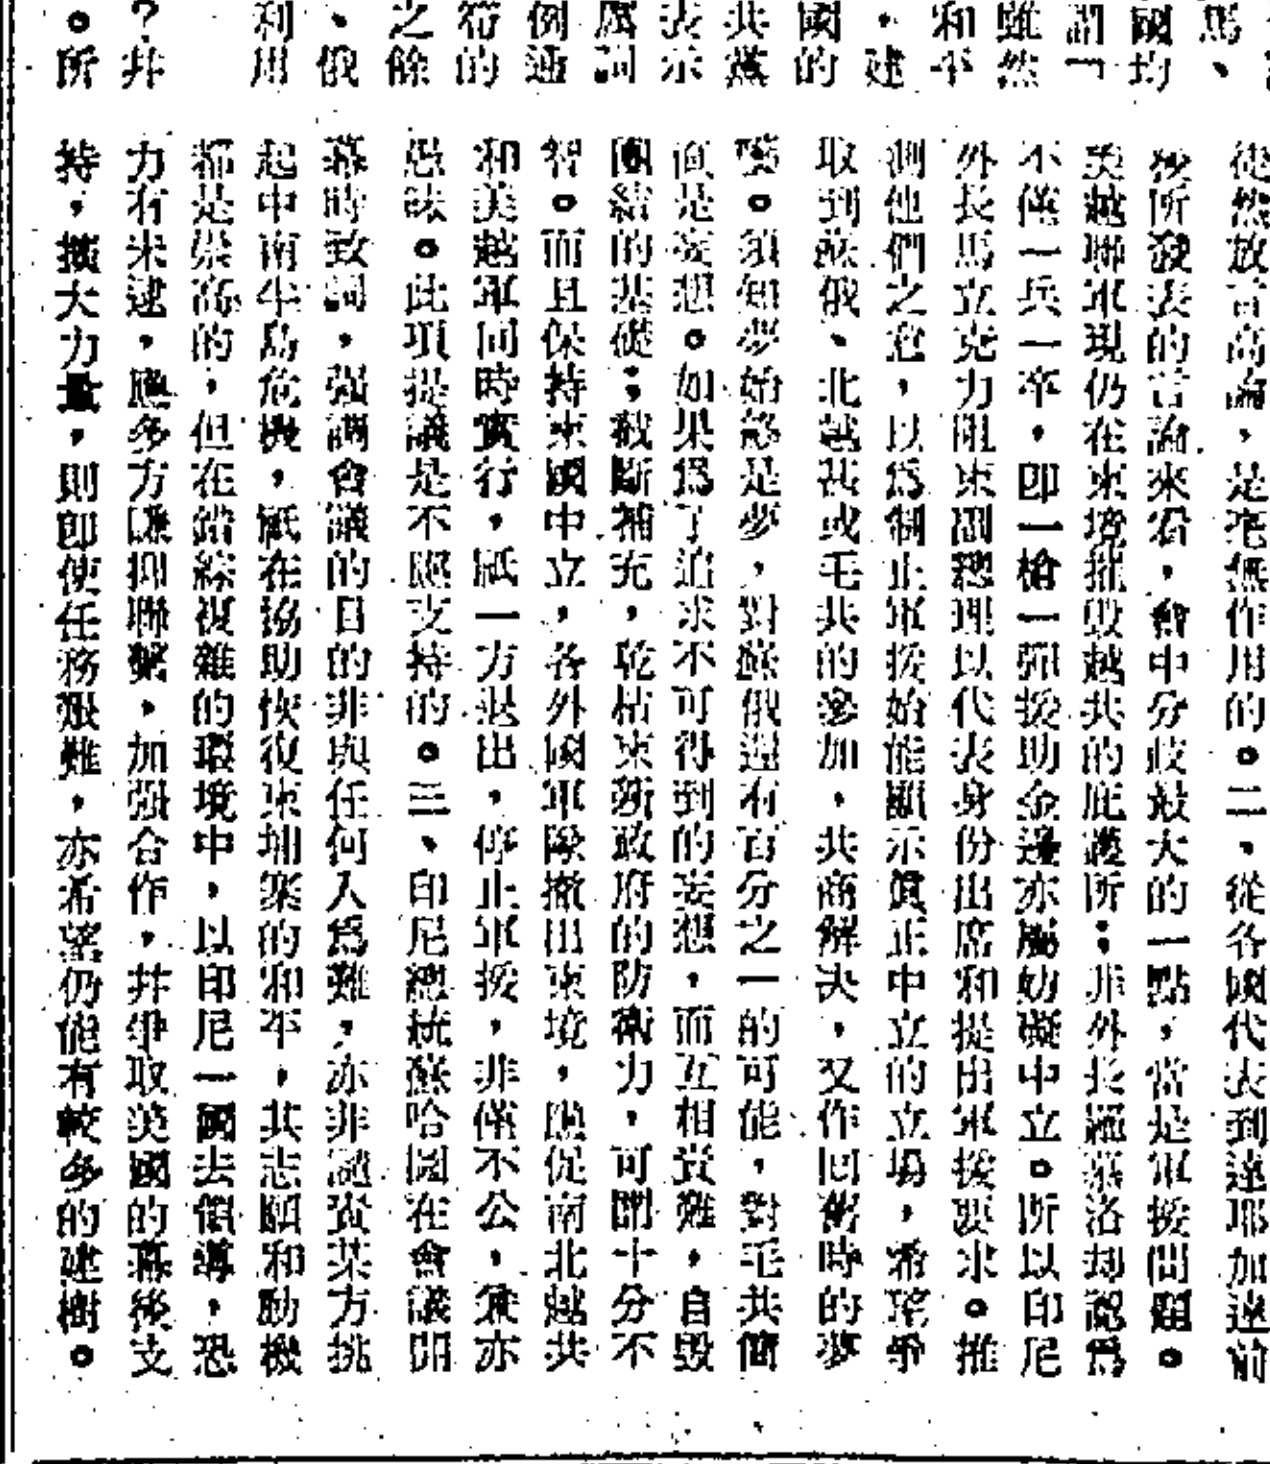 馬、
國均
謂「
雖然
和平
，建
國的
共黨
表示
厲詞
例通
符的
之餘
、俄
利用
？井
。所
徒然放言高論，是毫無作用的。二，從各國代表到達耶加達前
後所發表的言論來看，會中分歧最大的一點，當是軍援問題。
美越聯軍現仍在柬境摧毀越共的庇護所；非外長羅慕洛却認爲
不僅一兵一卒，卽一槍一彈援助金邊亦屬妨礙中立。所以印尼
外長馬立克力阻柬副總理以代表身份出席和提出軍援要求。推
測他們之意，以爲制止軍援始能顯示眞正中立的立場，希琀爭
取到蘇俄、北越甚或毛共的參加，共商解决，又作回舊時的夢
囈。須知夢始終是夢，對蘇俄還有百分之一的可能，對毛共簡
直是妄想。如果爲了追求不可得到的妄想，而互相責難，自毀
團結的基礎；截斷補充，乾枯柬新政府的防衞力，可謂十分不
智。而且保持柬國中立，各外國軍隊撤出柬境，應促南北越共
和美越軍同時實行，祇一方退出，停止軍援，非僅不公，兼亦
愚昧。此項提議是不應支持的。三、印尼總統蘇哈圖在會議開
幕時致詞，强調會議的目的非與任何人爲難，亦非譴責某方挑
起中南半島危機，祇在協助恢復柬埔寨的和平，其志願和動機
都是崇高的，但在錯綜複雜的環境中，以印尼一國去領導，恐
力有未逮，應多方謙抑聯繫，加强合作，井爭取美國的幕後支
持，擴大力量，則卽使任務艱難，亦希望仍能有較多的建樹。